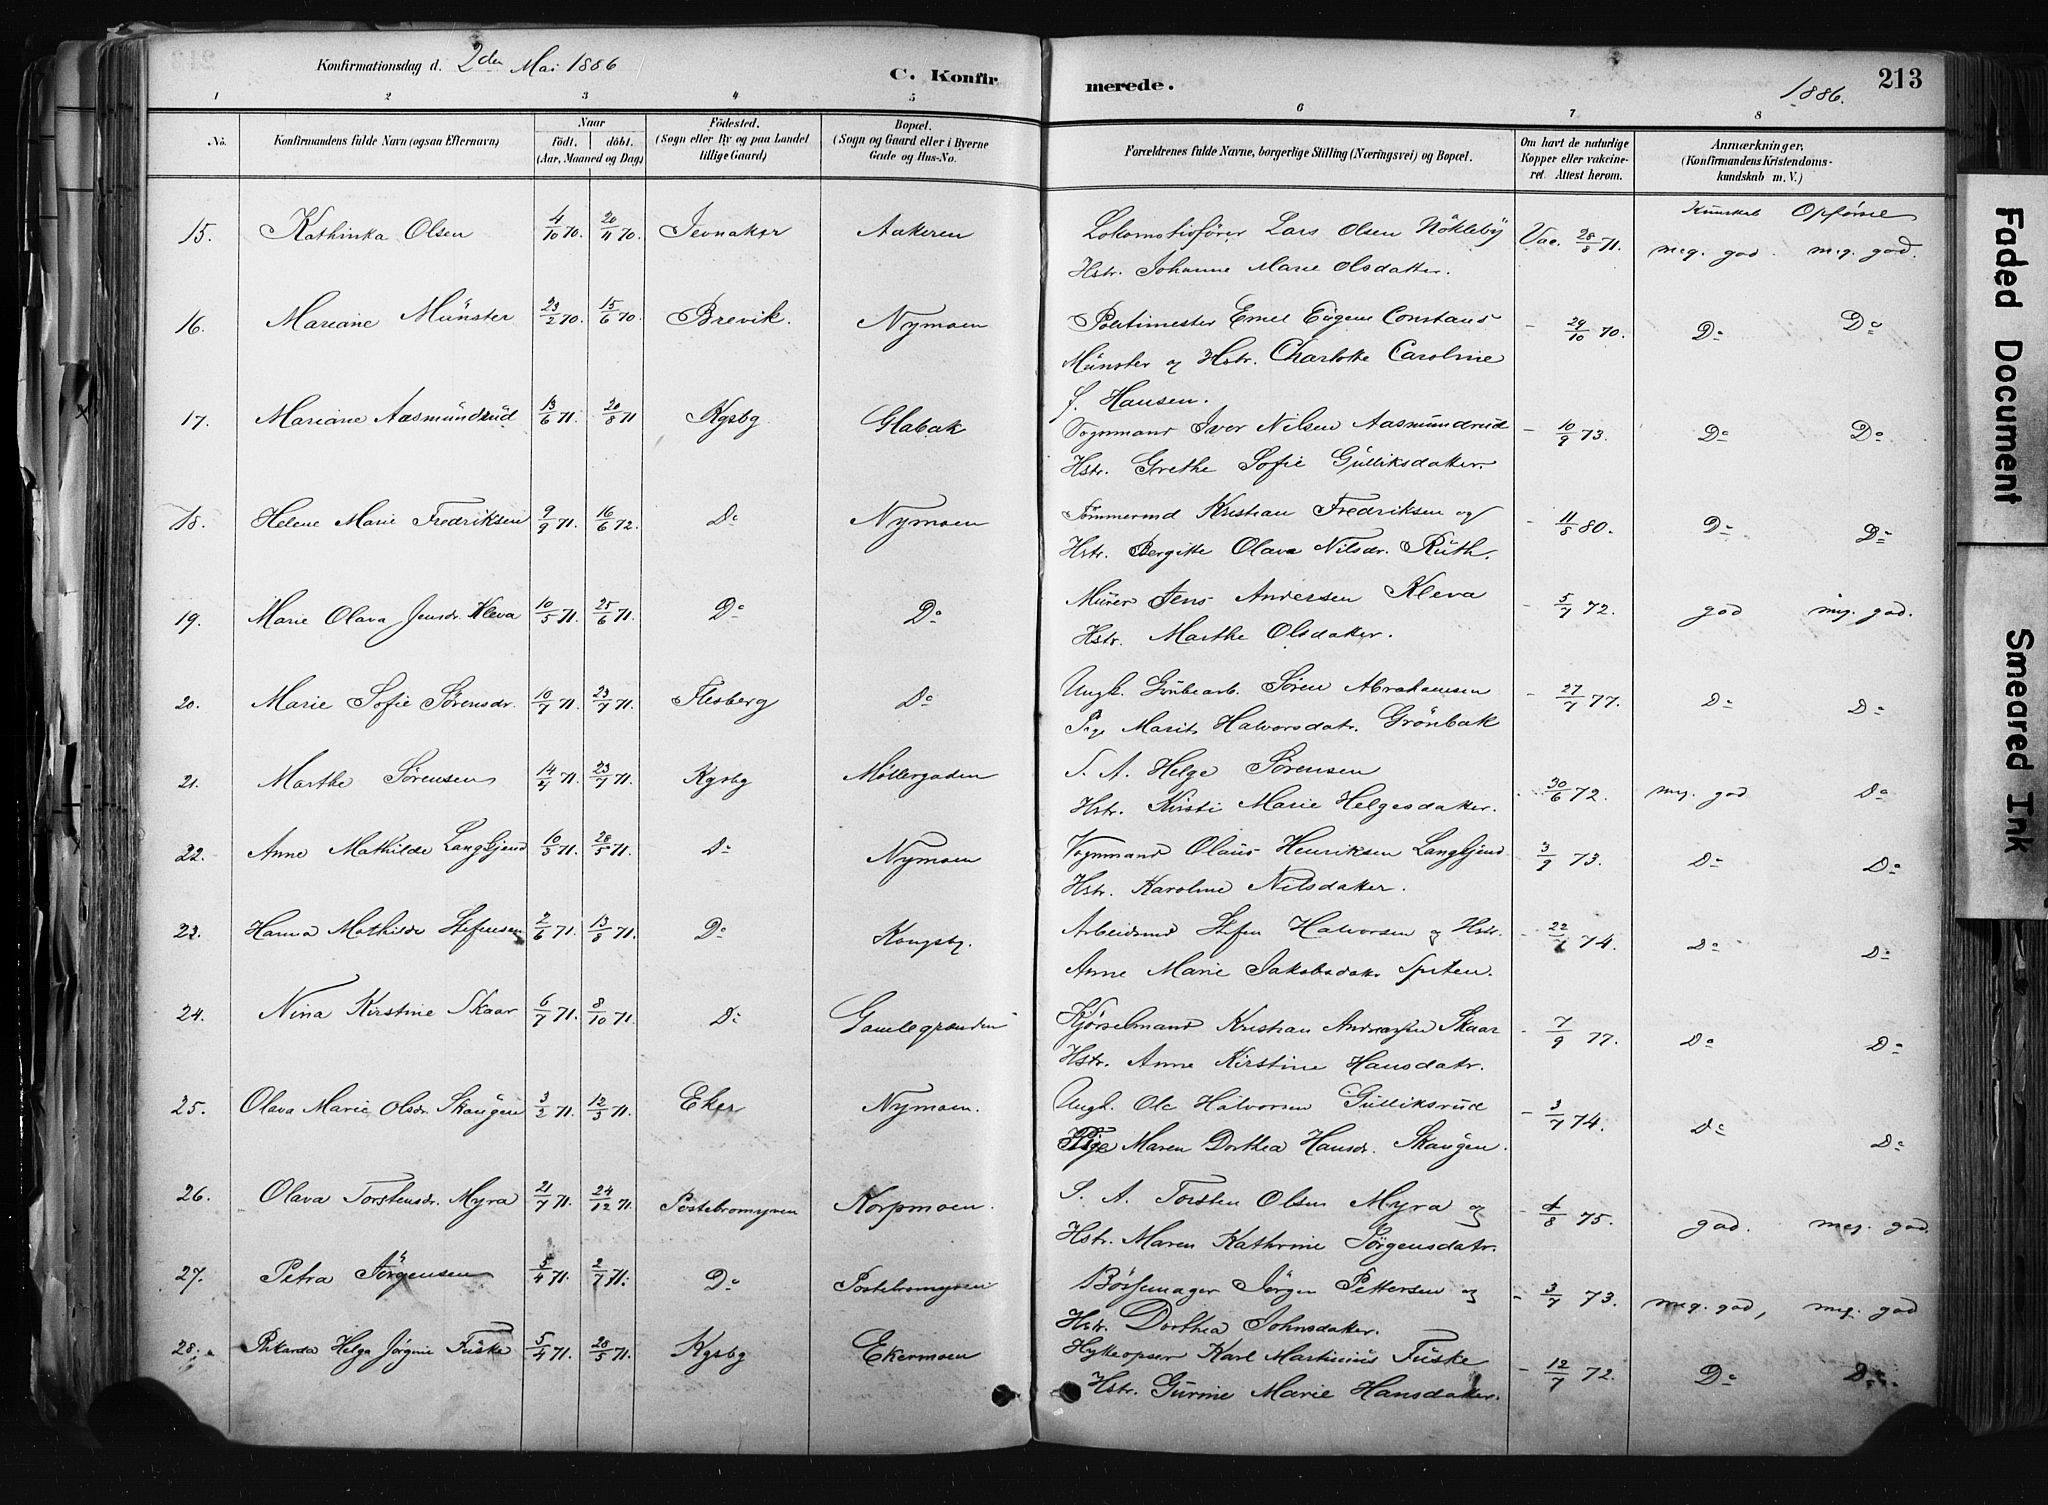 Konfirmationsdag d. 2den Mai 1886
C. Konfirmerede.
1886. 213
1 2 3 4 5 6 7 8
No. | Konfirmandens fulde Navn (ogsaa Efternavn) | Naar født. døbt. (Aar, Maaned og Dag) | Fødested. (Sogn eller By og paa Landet tillige Gaard) | Bopæl. (Sogn og Gaard eller i Byerne Gade og Hus-No. | Forældrenes fulde Navne, borgerlige Stilling (Næringsvei) og Bopæl. | Om havt de naturlige Kopper eller vakcineret. Attest herom. | Anmærkninger. (Konfirmandens Kristendomskundskab m. V.)
Kundskab Opførsel
15. Kathinka Olsen 4/10 70. 20/4 70. Jevnaker Aakeren Lokomotivfører Lars Olsen Nökleby Vac. 28/8 71. meg. god. meg. god.
Hstr. Johanne Marie Olsdatter.
16. Mariane Münster 23/2 70. 15/6 70. Brevik. Nymoen Politimester Emel Eugene Constans - 29/10 70. Do Do
Münster og Hstr. Charlotte Caroline
f. Hansen.
17. Mariane Aasmundrud 13/6 71. 20/8 71 Kgsbg Glabak Vognmand Iver Nilsen Aasmundrud - 10/9 73. Do Do
Hstr. Grethe Sofie Gulliksdatter.
18. Helene Marie Fredriksen 9/9 71. 16/6 72. Do Nymoen Tömmermd Kristian Fredriksen og - 11/8 80. Do Do
Hstr. Bergitte Olava Nilsdr. Ruth.
19. Marie Olava Jensdr. Kleva 10/5 71. 25/6 71. Do Do Murer Jens Andersen Kleva - 5/7 72. god meg. god.
Hstr. Marthe Olsdatter.
20. Marie Sofie Sörensdr. 10/7 71. 23/7 71. Flesberg Do Ungk. Grubearb. Sören Abrahamsen - 27/7 77. Do Do
Pige Marit Halvorsdatr. Grönbak
21. Marthe Sörensen 14/4 71. 23/7 71. Kgsbg Møllergaden S. A. Helge Sörensen - 30/6 72. meg. god Do
Hstr. Kirsti Marie Helgesdatter.
22. Anne Mathilde Langgjend 10/3 71. 28/5 71. Do Nymoen Vognmand Olaus Henriksen Langgjend 3/9 73. Do Do
Hstr. Karoline Nilsdatter.
23. Hanna Mathilde Stefensen 2/6 71. 13/8 71. Do Kongsbg. Arbeidsmd Stefen Halvorsen og Hstr. - 22/7 74. Do Do
Anne Marie Jakobsdatr Spiten.
24. Nina Kirstine Skaar 6/7 71. 8/10 71. Do Gamlegrænden Kjörselmand Kristian Andreassen Skaar - 7/9 77. Do Do
Hstr. Anne Kirstine Hansdatr.
25. Olava Marie Olsdr. Skaugen 3/2 71. 12/3 71. Eker Nymoen. Ungk. Ole Halvorsen Gulliksrud - 3/7 74. Do Do
Pige Maren Dorthea Hansdr. Skaugen.
26. Olava Torstensdr. Myra 21/7 71. 24/12 71. Postebromyren Korpmoen. S. A. Torsten Olsen Myra og - 4/8 75. god. meg. god.
Hstr. Maren Kathrine Jörgensdatr.
27. Petra Jörgensen 5/4 71. 2/7 71. Do Postebromyren Bössemager Jörgen Pettersen og - 3/7 73. meg. god, meg. god
Hstr. Dorthea Johnsdatter.
28. Rikarda Helga Jörgine Fuske 5/4 71. 28/5 71. Kgsbg Ekermoen Hytteopser Karl Martinius Fuske - 12/7 72. Do Do
Hstr. Gurine Marie Hansdatter.
Faded Document
Smeared Ink